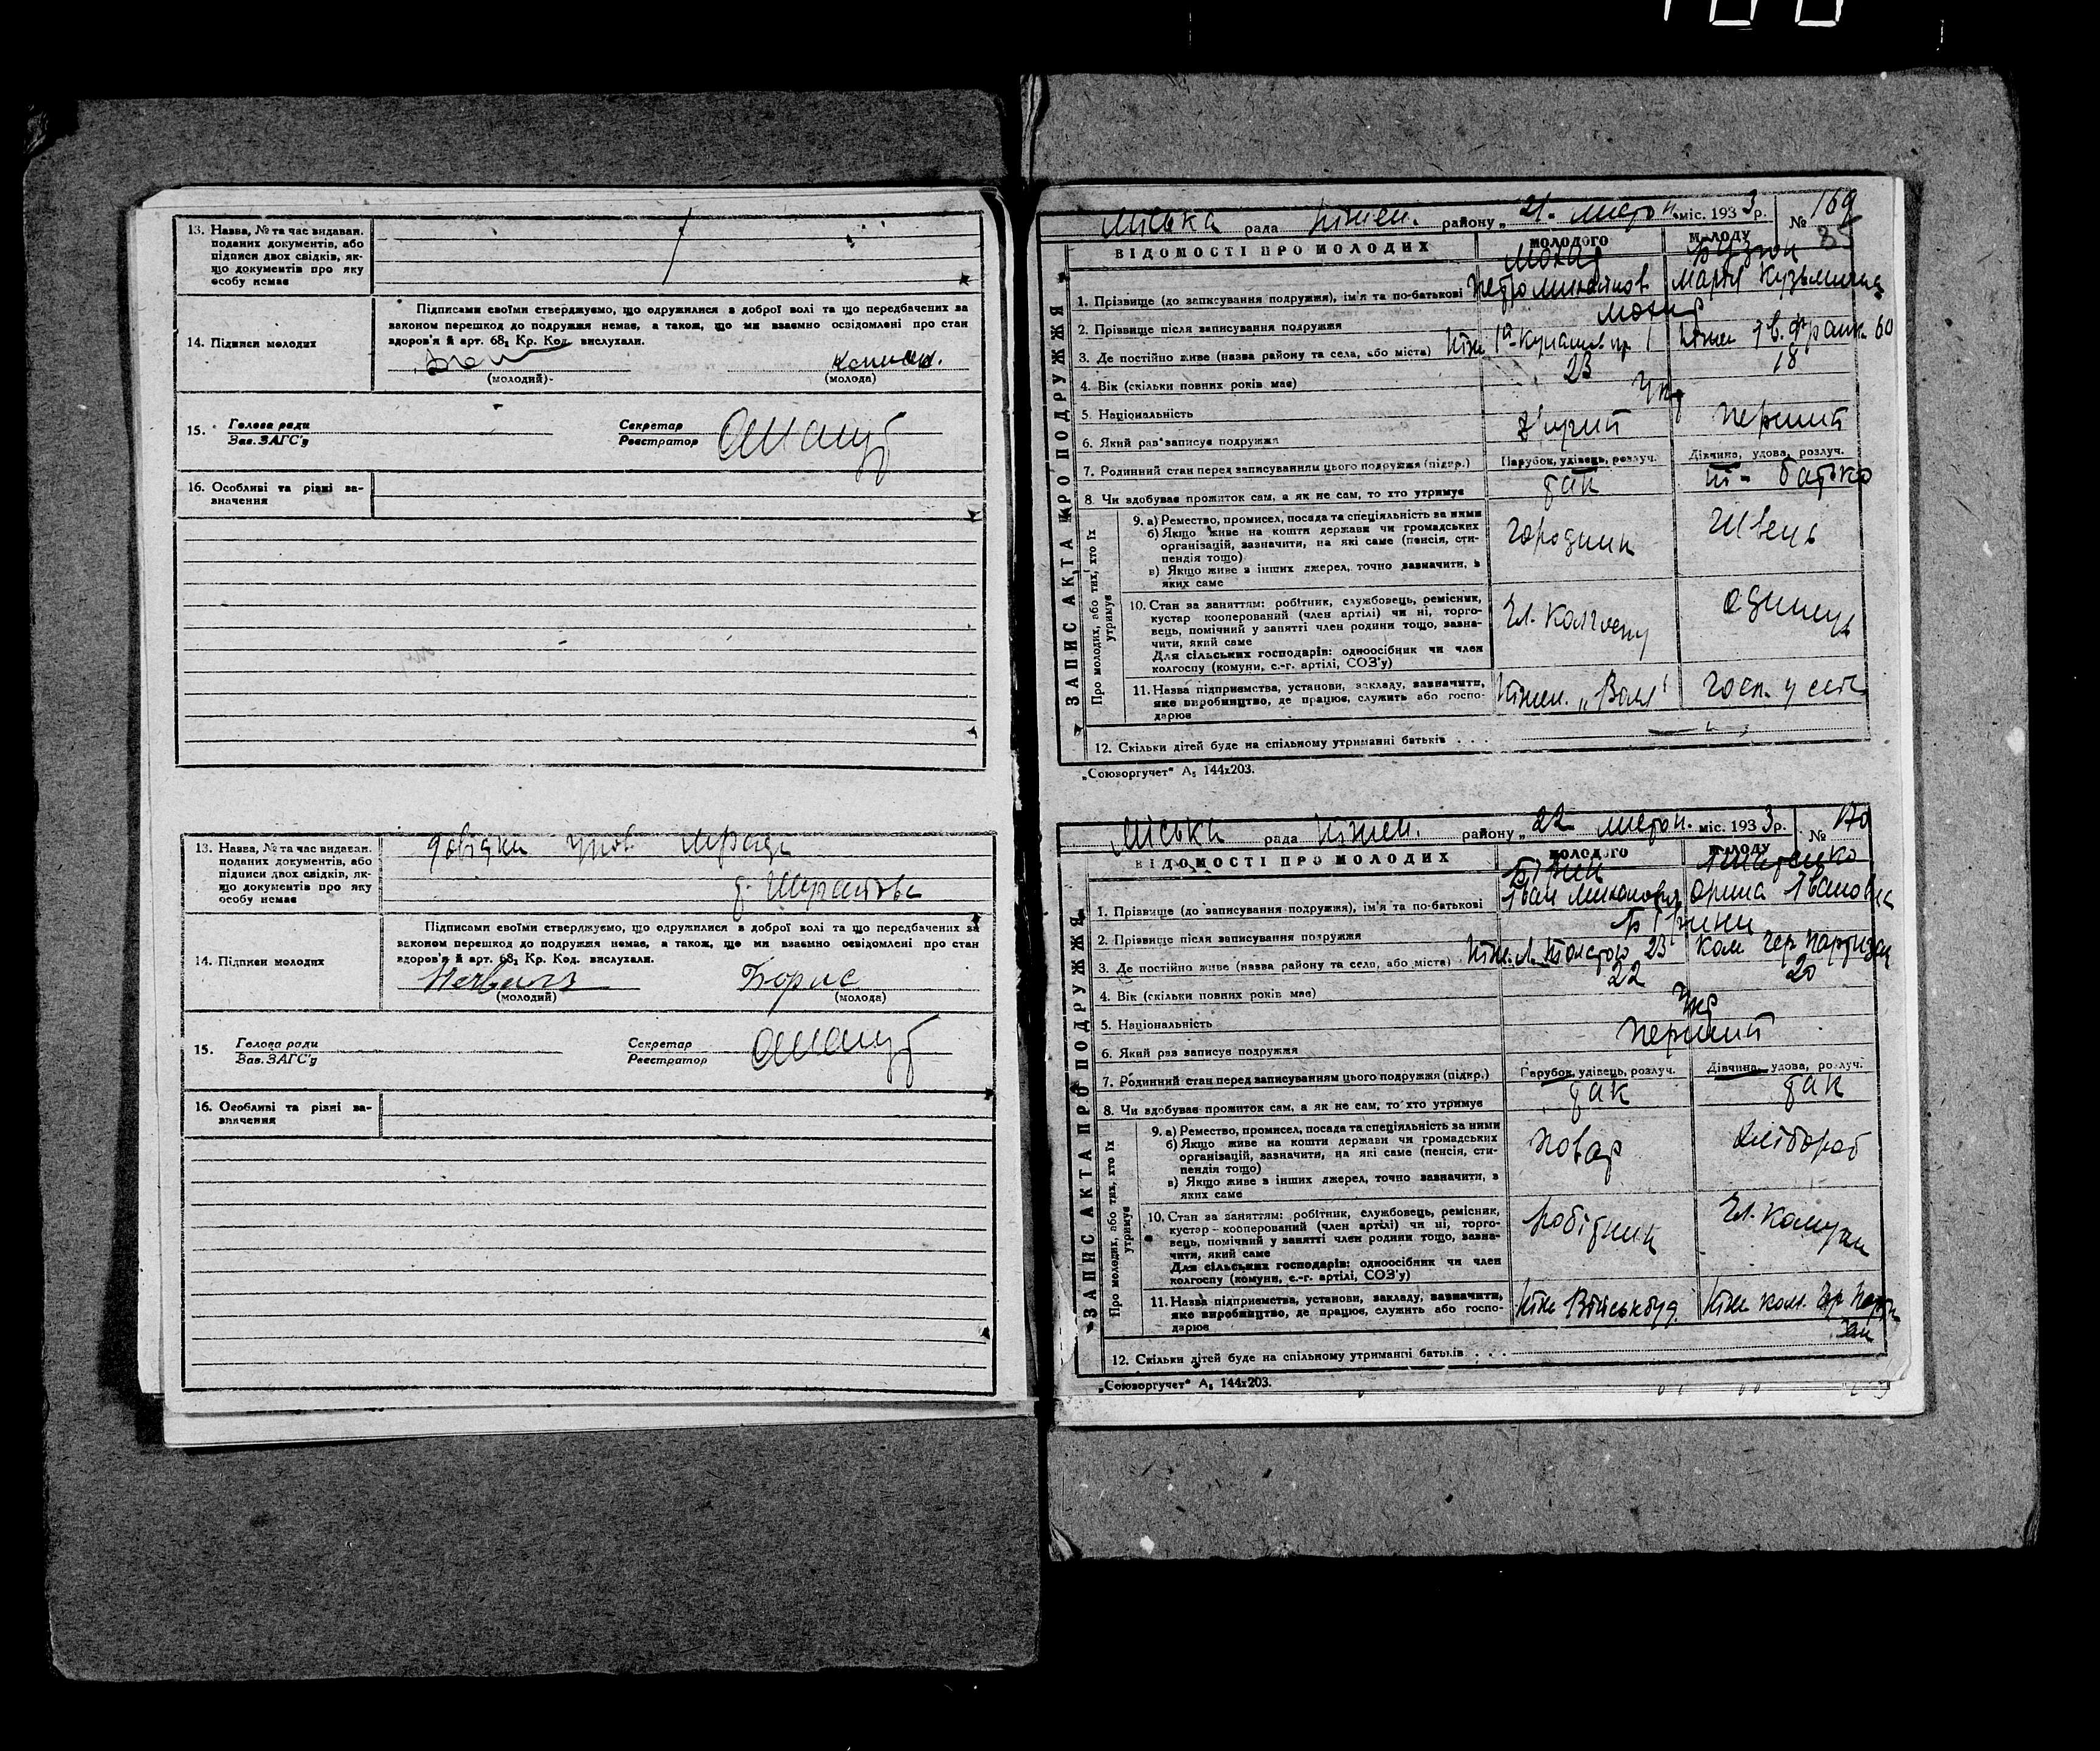 13. Назва, № та час видаван.
поданих документів, або
підписи двох свідків, як-
що документів про яку
особу немає
14. Підписи молодих
Підписами своїми стверджуємо, що одружилися з доброї волі та що передбачених за
законом перешкод до подружжя немає, а також, що ми взаємно освідомлені про стан
здоров'я й арт. 68₁ Кр. Код. вислухали.
(молодий)
(молода)
15. Голова ради
Зав. ЗАГС'у
Секретар
Реєстратор
16. Особливі та різні за-
значення
13. Назва, № та час видаван.
поданих документів, або
підписи двох свідків, як-
що документів про яку
особу немає
довідки
14. Підписи молодих
Підписами своїми стверджуємо, що одружилися з доброї волі та що передбачених за
законом перешкод до подружжя немає, а також, що ми взаємно освідомлені про стан
здоров'я й арт. 68₁ Кр. Код. вислухали.
(молодий)
Борис
(молода)
15. Голова ради
Зав. ЗАГС'у
Секретар
Реєстратор
16. Особливі та різні за-
значення
ЗАПИС АКТА ПРО ПОДРУЖЖЯ
Міська рада Ніжен. району „21. листоп. міс. 1933 р. № 169
85
ВІДОМОСТІ ПРО МОЛОДИХ
МОЛОДОГО
МОЛОДУ
1. Прізвище (до записування подружжя), ім'я та по-батькові Петро Михайлов Марія Кузьмишна
2. Прізвище після записування подружжя
3. Де постійно живе (назва району та села, або міста) Ніжен Ів. Франк. 60
4. Вік (скільки повних років має) 23 18
5. Національність Укр
6. Який раз записує подружжя другий перший
7. Родинний стан перед записуванням цього подружжя (підкр.) Парубок, удівець, розлуч. Дівчина, удова, розлуч.
8. Чи здобуває прожиток сам, а як не сам, то хто утримує так ні - батько
Про молодих, або тих, хто їх утримує
9. а) Ремество, промисел, посада та спеціяльність за ними
б) Якщо живе на кошти держави чи громадських
організацій, зазначити, на які саме (пенсія, сти-
пендія тощо)
в) Якщо живе з інших джерел, точно зазначити, з
яких саме
городник Швець
10. Стан за заняттям: робітник, службовець, ремісник,
кустар кооперований (член артілі) чи ні, торго-
вець, помічний у занятті член родини тощо, зазна-
чити, який саме
Для сільських господарів: одноосібник чи член
колгоспу (комуни, с.-г. артілі, СОЗ'у)
Чл. колгоспу одинець
11. Назва підприємства, установи, закладу, зазначити,
яке виробництво, де працює, служить або госпо-
дарює
Ніжен. „Воля" госп. у селі
12. Скільки дітей буде на спільному утриманні батьків . . .
„Союзоргучет" А₅ 144х203.
ЗАПИС АКТА ПРО ПОДРУЖЖЯ
Міська рада Ніжен. району „22 листоп. міс. 1933 р. № 170
ВІДОМОСТІ ПРО МОЛОДИХ
МОЛОДОГО
МОЛОДУ
1. Прізвище (до записування подружжя), ім'я та по-батькові Іван Миханович Орина Івановна
2. Прізвище після записування подружжя
3. Де постійно живе (назва району та села, або міста) Ніж. Л. Толстого 23 ком Чер Партизан
4. Вік (скільки повних років має) 22 20
5. Національність Укр
6. Який раз записує подружжя перший
7. Родинний стан перед записуванням цього подружжя (підкр.) Парубок, удівець, розлуч. Дівчина, удова, розлуч.
8. Чи здобуває прожиток сам, а як не сам, то хто утримує так так
Про молодих, або тих, хто їх утримує
9. а) Ремество, промисел, посада та спеціяльність за ними
б) Якщо живе на кошти держави чи громадських
організацій, зазначити, на які саме (пенсія, сти-
пендія тощо)
в) Якщо живе з інших джерел, точно зазначити, з
яких саме
повар хлібороб
10. Стан за заняттям: робітник, службовець, ремісник,
кустар - кооперований (член артілі) чи ні, торго-
вець, помічний у занятті член родини тощо, зазна-
чити, який саме
Для сільських господарів: одноосібник чи член
колгоспу (комуни, с.-г. артілі, СОЗ'у)
робітник Чл. комуни
11. Назва підприємства, установи, закладу, зазначити,
яке виробництво, де працює, служить або госпо-
дарює
Ніж Військбуд. Ніж ком. Чер Парти
зан
12. Скільки дітей буде на спільному утриманні батьків . . .
„Союзоргучет" А₅ 144х203.